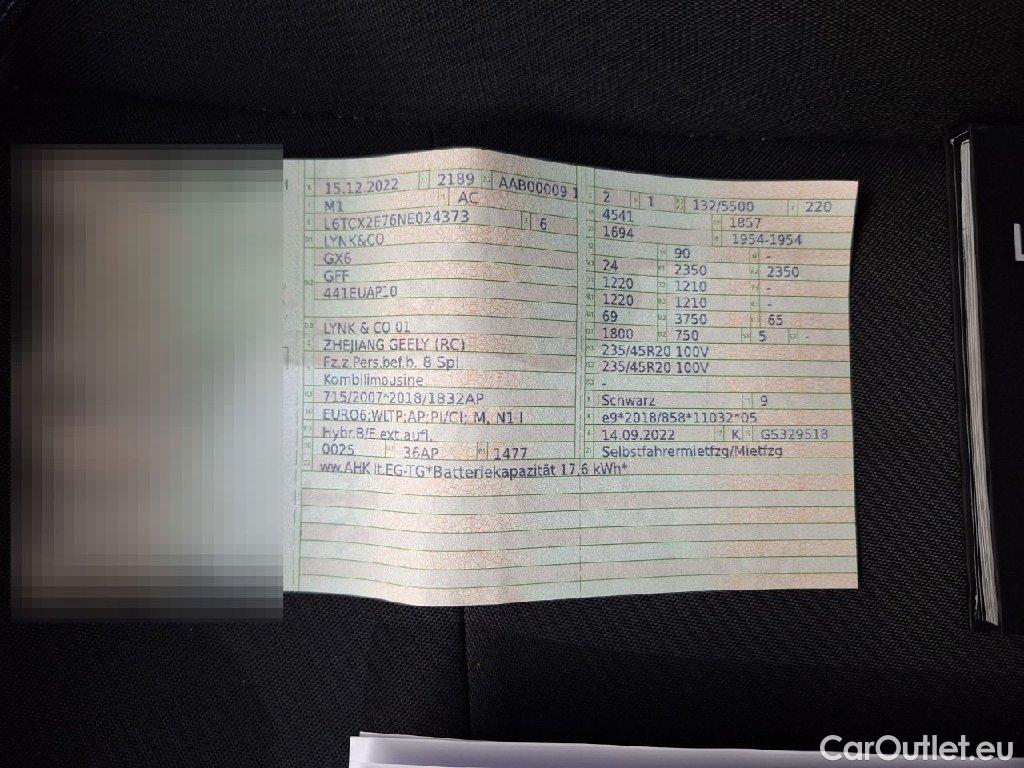 15.12.2022 2189 AAB00009 1
M1 AC
L6TCX2E76NE024373 6
LYNK&CO
GX6
GFF
441EUAP10
LYNK & CO 01
ZHEJIANG GEELY (RC)
Fz.z.Pers.bef.b. 8 Spl.
Kombilimousine
715/2007*2018/1832AP
EURO6;WLTP;AP;PI/CI; M, N1 I
Hybr.B/E ext.aufl.
0025 36AP 1477
ww.AHK lt.EG-TG*Batteriekapazität 17,6 kWh*
2 1 132/5500 220
4541 1857
1694 1954-1954
90 -
24 2350 2350
1220 1210 -
1220 1210 -
69 3750 65
1800 750 5 -
235/45R20 100V
235/45R20 100V
-
Schwarz 9
e9*2018/858*11032*05
14.09.2022 K GS329518
Selbstfahrermietfzg/Mietfzg
L
CarOutlet.eu